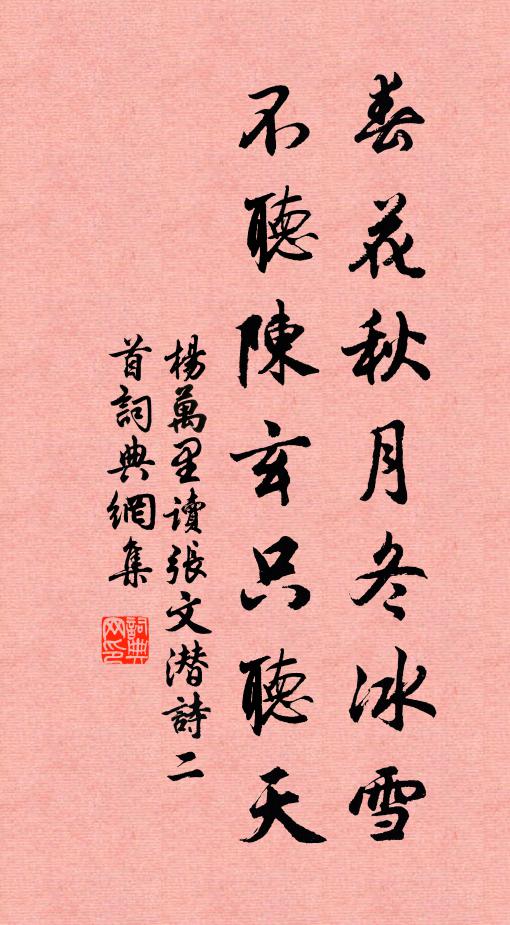 春花秋月冬冰雪
不聽陳玄只聽天
楊萬里讀張文潛詩二
首詞典網集
詞典
网印